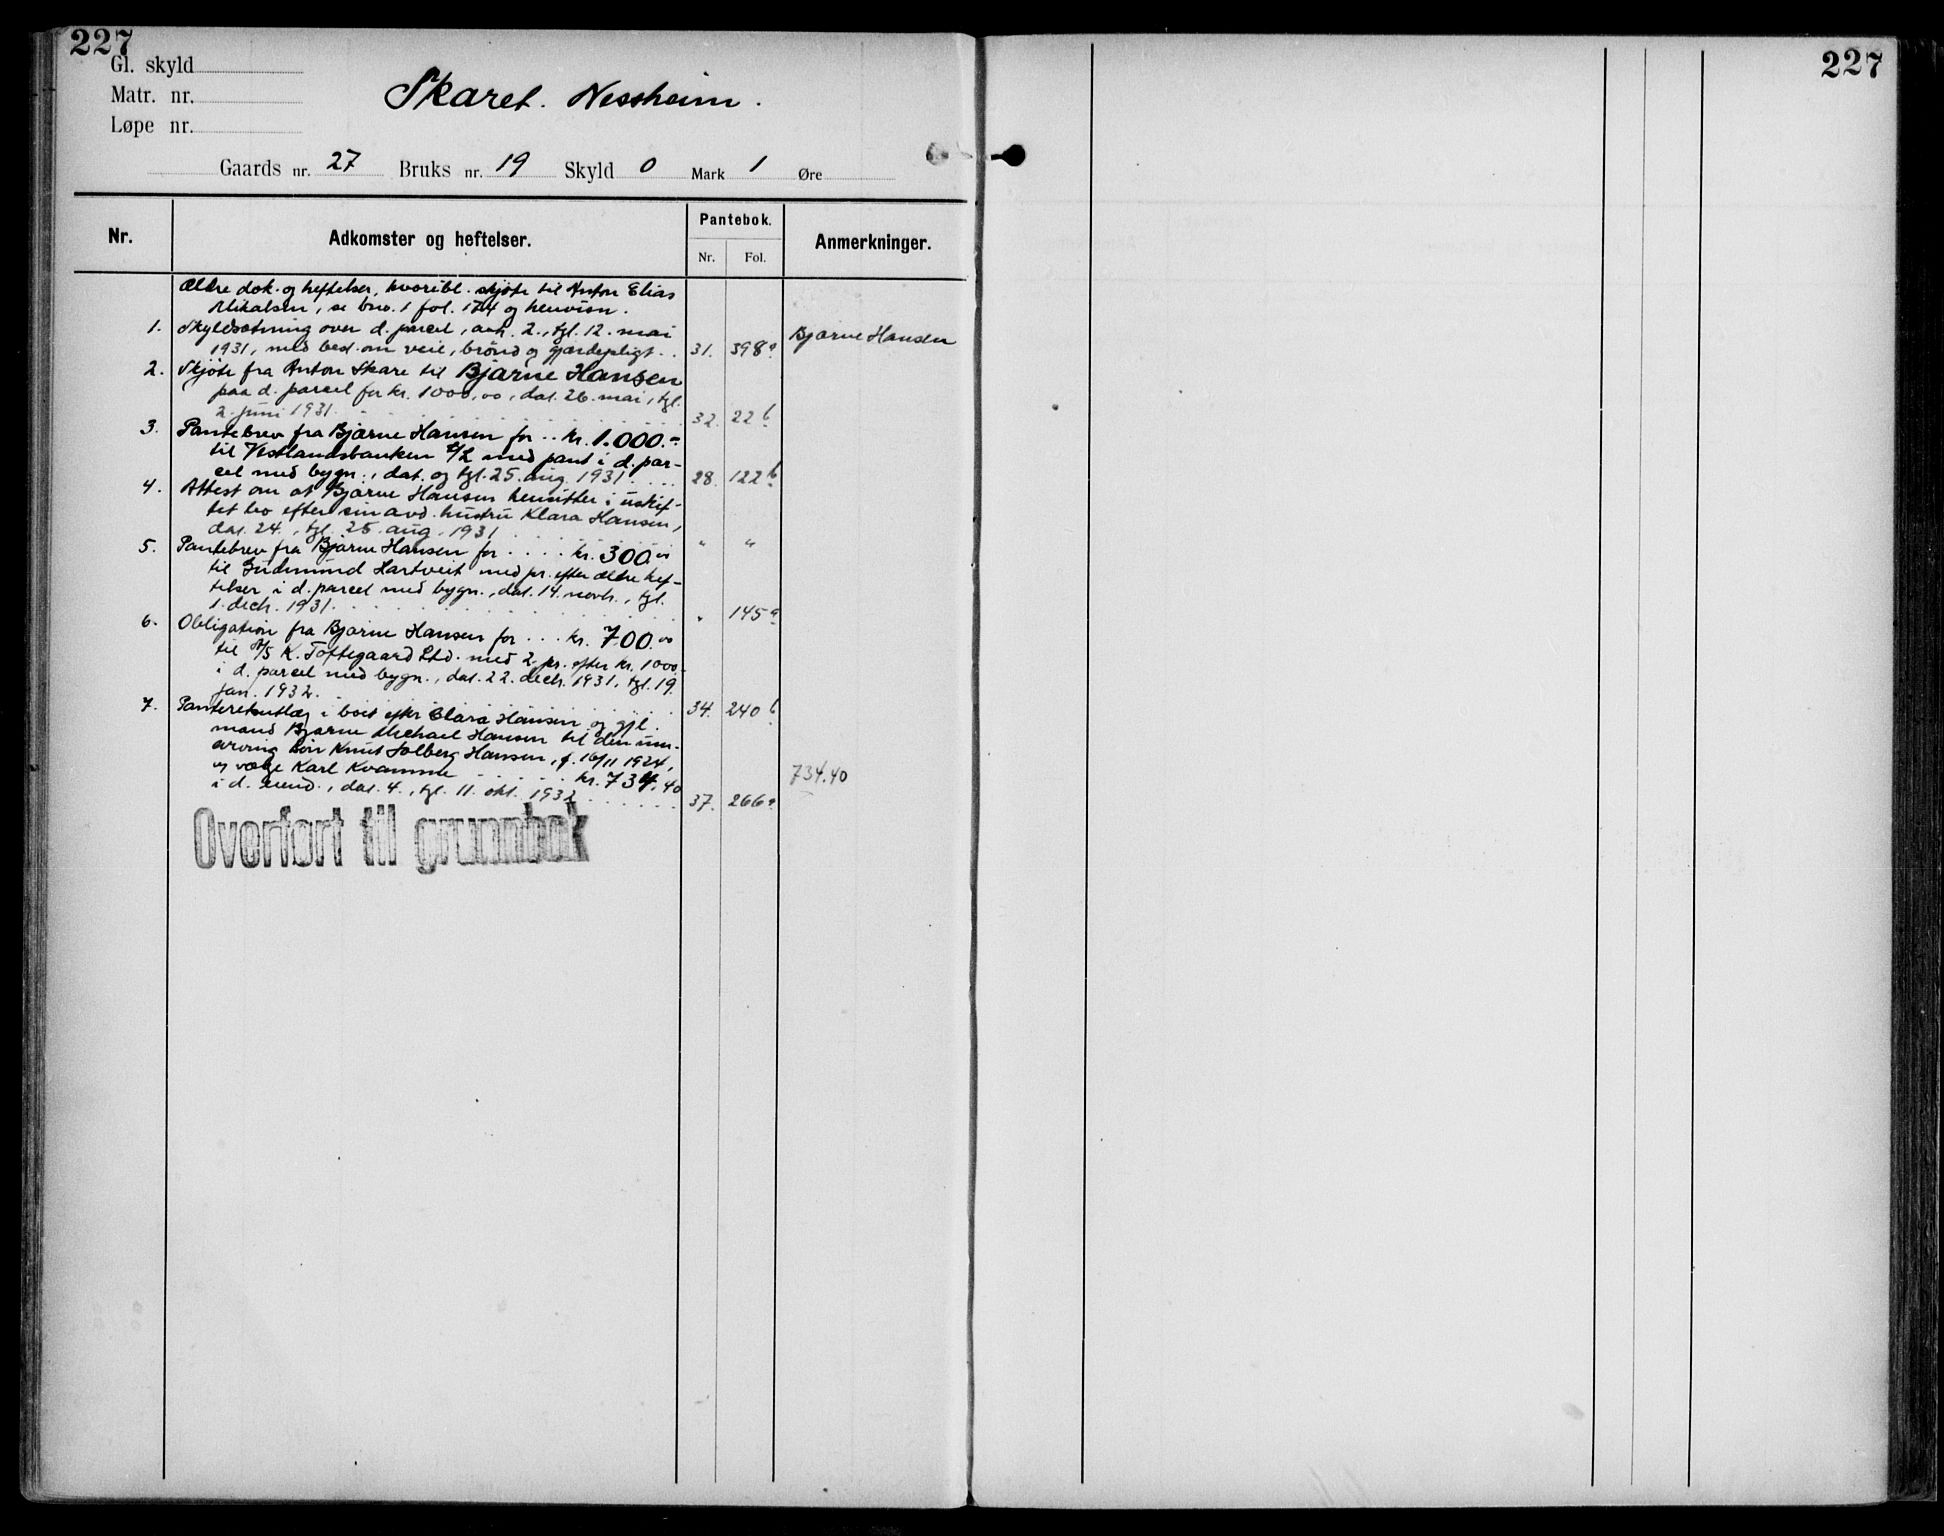 227
227
Gl. skyld
Matr. nr.
Løpe nr.
Skaret. Nessheim.
Gaards nr. 27 Bruks nr. 19 Skyld 0 Mark 1 Øre
Nr. Adkomster og heftelser. Pantebok. Anmerkninger.
Nr. Fol.
Ældre dok. og heftelser, hvoribl. skjøte til Anton Elias
Mikalsen, se bno. 1 fol. 174 og henvisn.
1. Skyldsætning over d. parcel, avh. 2., tgl. 12. mai
1931, med best. om veie, brønd og gjærdepligt. . 31. 398a Bjarne Hansen
2. Skjøte fra Anton Skare til Bjarne Hansen
paa d. parcel for kr. 1000,00, dat. 26. mai, tgl.
2. juni 1931. 32. 22b
3. Pantebrev fra Bjarne Hansen for .. kr. 1.000.-
til Vestlandsbanken A/L med pant i d. par-
cel med bygn., dat. og tgl. 25. aug. 1931 28. 122b
4. Attest om at Bjarne Hansen hensitter i uskif-
tet bo efter sin avd. hustru Klara Hansen,
dat. 24., tgl. 25. aug. 1931 " "
5. Pantebrev fra Bjarne Hansen for .... kr. 300.00
til Gudmund Hartveit med pr. efter ældre hef-
telser i d. parcel med bygn., dat. 14. novb., tgl.
1. decb. 1931. " 145a
6. Obligation fra Bjarne Hansen for ... kr. 700.00
til A/S K. Toftegaard Ltd. med 2. pr. efter kr. 1000.-
i d. parcel med bygn., dat. 22. decb. 1931, tgl. 19.
jan. 1932. 34. 240b
7. Panteretsutlæg i boet efter Clara Hansen og gjl.
mand Bjarne Michael Hansen til den um.
arving søn Knut Solberg Hansen, f. 16/11 1924,
v/ værge Karl Kvamme kr. 734,40 734.40
i d. eiend., dat. 4., tgl. 11. okt. 1932 37. 266a
Overført til grunnbok